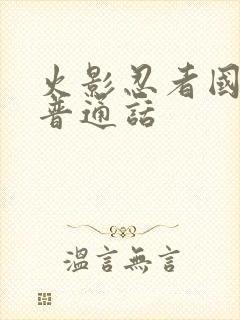 火影忍者國
普通話
溫言無言